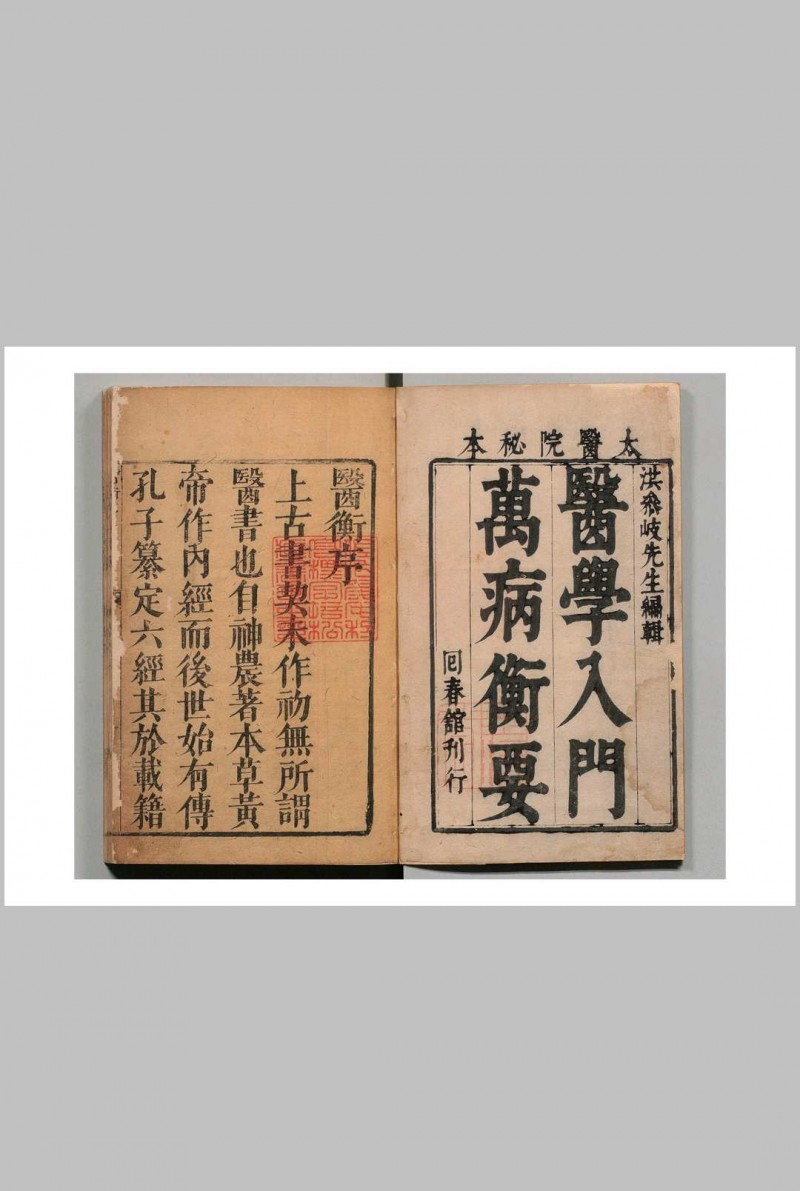 太醫院秘本
洪飛岐先生編輯
醫學入門
萬病衡要
回春舘刊行
醫衡序
上古書契未作初無所謂
醫書也自神農著本草黃
帝作內經而後世始有傳
孔子纂定六經其於載籍